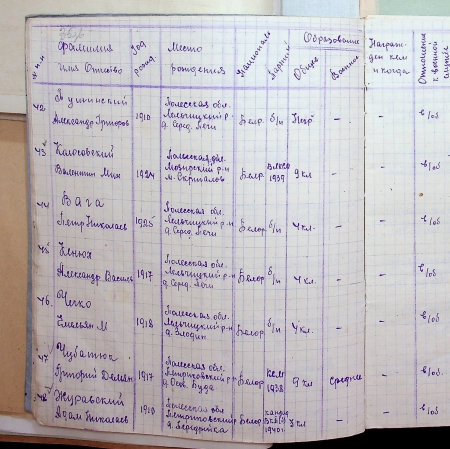 Фамилия Имя Отчество Год рожд. Место рождения Национальн. Партийн. Образование Общее Военное Награжден кем и когда Отношение к военной службе
42. Тушинский Александр Григоров 1910 Полесская обл. Лельчицкий р-н д. Серед. Печи Белор б/п – – в/об
43. Колосовский Валентин Мих 1924 Полесская обл. Мозырский р-н м. Скрыгалов Белор ВЛКСМ 1939 9 кл – – в/об
44. Вага Петр Николаев 1925 Полесская обл. Лельчицкий р-н д. Серед. Печи Белор б/п 4 кл. – – в/об
45. Клюх Александр Василь 1917 Полесская обл. Лельчицкий р-н д. Серед. Печи Белор б/п 4 кл. – – в/об
46. Чечко Емельян М 1918 Полесская обл. Лельчицкий р-н д. Злодин Белор б/п 4 кл. – – в/об
47. Чубатюк Григорий Демьян 1917 Полесская обл. Петриковский р-н д. Осов. Буда Белор КСМ 1938 9 кл среднее – в/об
48. Журавский Адам Николаев 1910 Полесская обл Петриковский р д. Белор канд ВКП(б) 1940 г 7 кл – – в/об